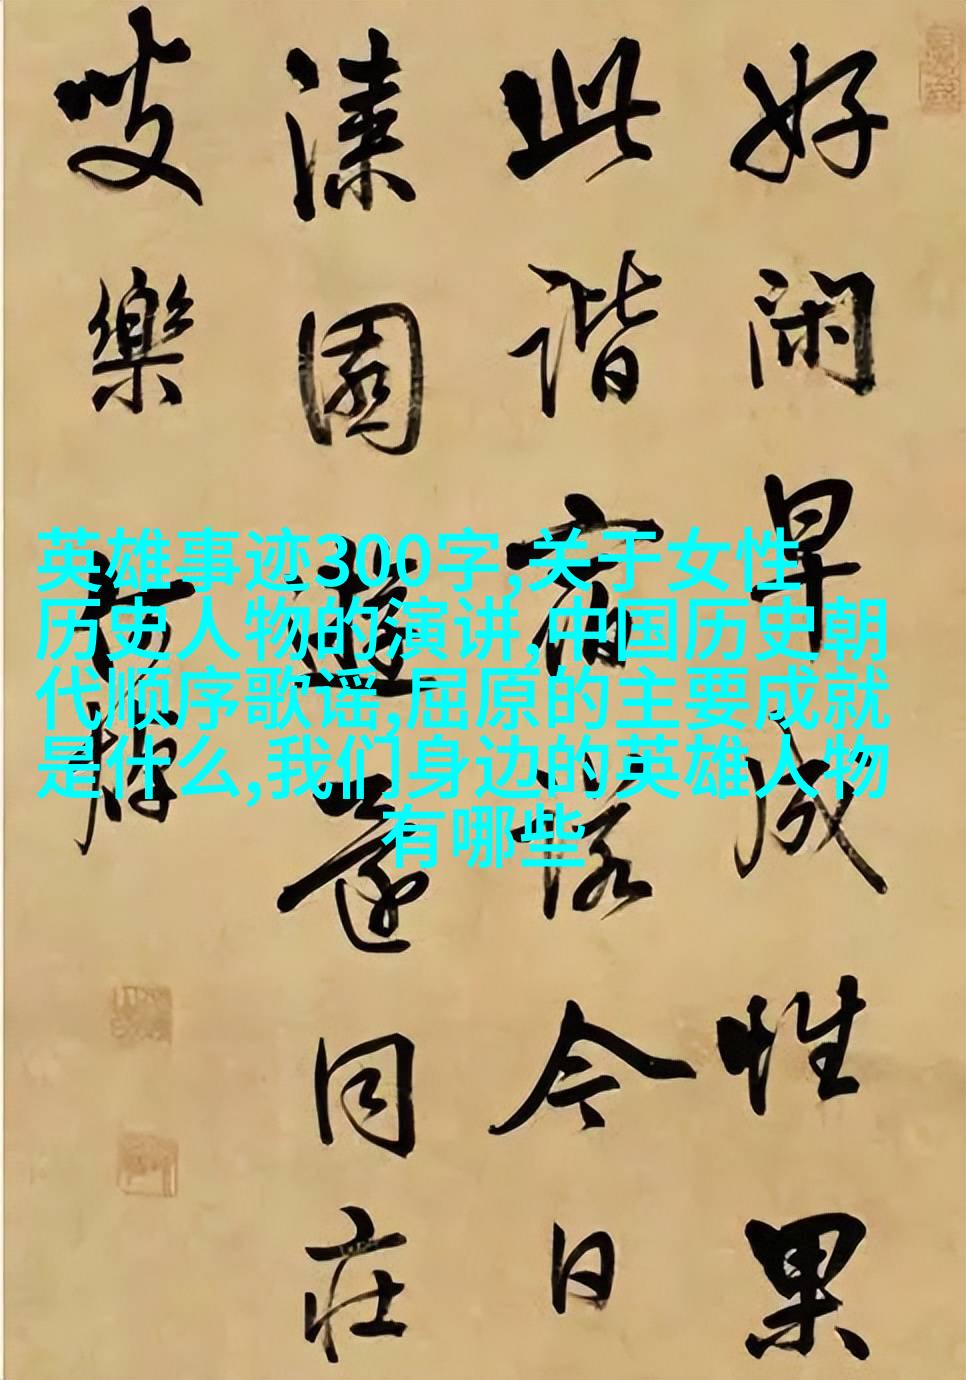 好閑早成性果
此諧宿諾今日
漆園遊還同庄
叟樂
英雄事迹300字,关于女性
历史人物的演讲,中国历史朝
代顺序歌谣,屈原的主要成就
是什么,我们身边的英雄人物
有哪些